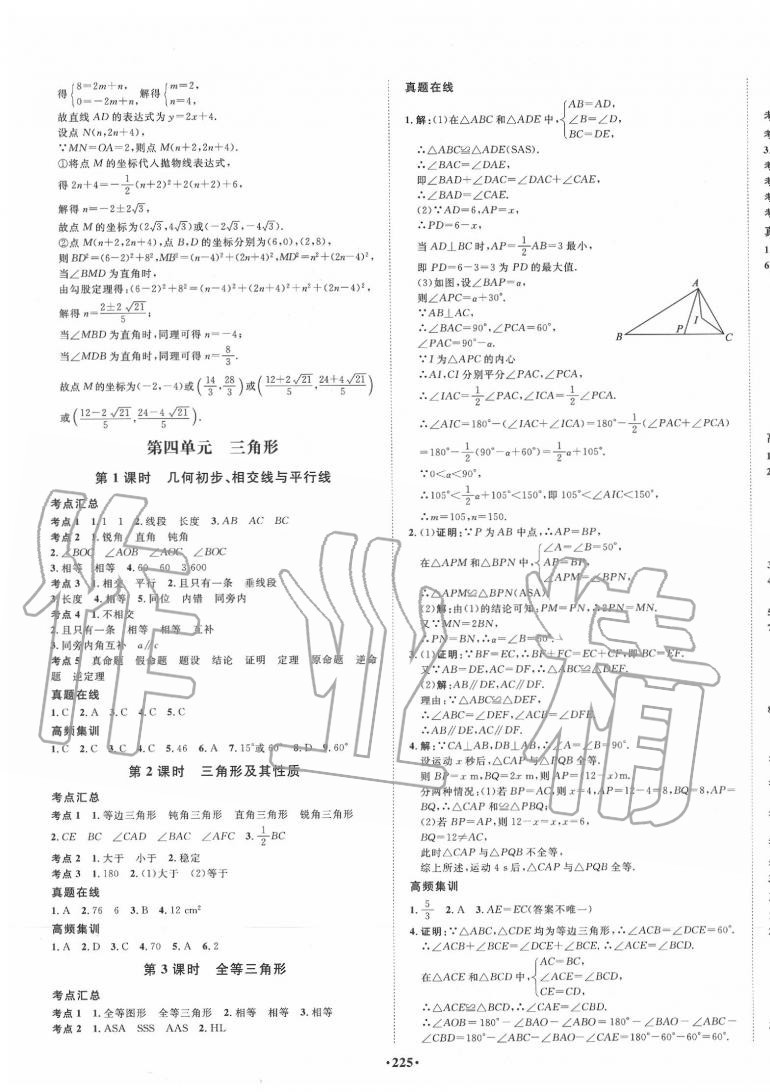 得{8=2m+n, 0=-2m+n, 解得{m=2, n=4,
故直线 AD 的表达式为 y=2x+4.
设点 N(n,2n+4),
∵MN=OA=2,则点 M(n+2,2n+4).
①将点 M 的坐标代入抛物线表达式,
得 2n+4=-1/2(n+2)²+2(n+2)+6,
解得 n=-2±2√3,
故点 M 的坐标为(2√3,4√3)或(-2√3,-4√3).
②点 M(n+2,2n+4),点 B,D 的坐标分别为(6,0),(2,8),
则 BD²=(6-2)²+8²,MB²=(n-4)²+(2n+4)²,MD²=n²+(2n-4)²,
当∠BMD 为直角时,
由勾股定理得:(6-2)²+8²=(n-4)²+(2n+4)²+n²+(2n-4)²,
解得 n=(2±2√21)/5;
当∠MBD 为直角时,同理可得 n=-4;
当∠MDB 为直角时,同理可得 n=8/3.
故点 M 的坐标为(-2,-4)或(14/3,28/3)或((12+2√21)/5,(24+4√21)/5)
或((12-2√21)/5,(24-4√21)/5).
第四单元 三角形
第 1 课时 几何初步、相交线与平行线
考点汇总
考点 1 1.1 1 2.线段 长度 3.AB AC BC
考点 2 1.锐角 直角 钝角
2.∠BOC ∠AOB ∠AOC ∠BOC
3.相等 相等 4.60 60 3 600
考点 3 1.相交 平行 2.且只有一条 垂线段
3.长度 4.相等 5.同位 内错 同旁内
考点 4 1.不相交
2.且只有一条 相等 相等 互补
3.同旁内角互补 a∥c
考点 5 真命题 假命题 题设 结论 证明 定理 原命题 逆命
题 逆定理
真题在线
1.C 2.A 3.C 4.C 5.C
高频集训
1.C 2.C 3.C 4.C 5.46 6.A 7.15°或60° 8.D 9.60°
第 2 课时 三角形及其性质
考点汇总
考点 1 1.等边三角形 钝角三角形 直角三角形 锐角三角形
2.CE BC ∠CAD ∠BAC ∠AFC 3.1/2BC
考点 2 1.大于 小于 2.稳定
考点 3 1.180 2.(1)大于 (2)等于
真题在线
1.A 2.76 6 3.B 4.12 cm²
高频集训
1.A 2.D 3.C 4.70 5.A 6.2
第 3 课时 全等三角形
考点汇总
考点 1 1.全等图形 全等三角形 2.相等 相等 3.相等
考点 2 1.ASA SSS AAS 2.HL
真题在线
1.解:(1)在△ABC 和△ADE 中,{AB=AD, ∠B=∠D, BC=DE,
∴△ABC≌△ADE(SAS).
∴∠BAC=∠DAE,
即∠BAD+∠DAC=∠DAC+∠CAE,
∴∠BAD=∠CAE.
(2)∵AD=6,AP=x,
∴PD=6-x,
当 AD⊥BC 时,AP=1/2AB=3 最小,
即 PD=6-3=3 为 PD 的最大值.
(3)如图,设∠BAP=α,
则∠APC=α+30°.
∵AB⊥AC,
∴∠BAC=90°,∠PCA=60°,
∠PAC=90°-α.
∵I 为△APC 的内心
∴AI,CI 分别平分∠PAC,∠PCA,
∴∠IAC=1/2∠PAC,∠ICA=1/2∠PCA.
∴∠AIC=180°-(∠IAC+∠ICA)=180°-1/2(∠PAC+∠PCA)
=180°-1/2(90°-α+60°)=1/2α+105°.
∵0<α<90°,
∴105°<1/2α+105°<150°,即 105°<∠AIC<150°,
∴m=105,n=150.
A
I
B
P
C
2.(1)证明:∵P 为 AB 中点,∴AP=BP,
在△APM 和△BPN 中,{∠A=∠B=50°, AP=BP, ∠APM=∠BPN,
∴△APM≌△BPN(ASA).
(2)解:由(1)的结论可知:PM=PN,∴2PN=MN.
又∵MN=2BN,
∴PN=BN,∴α=∠B=50°.
3.(1)证明:∵BF=EC,∴BF+FC=EC+FC,即BC=EF.
又∵AB=DE,AC=DF,∴△ABC≌△DEF.
(2)解:AB∥DE,AC∥DF.
理由:∵△ABC≌△DEF,
∴∠ABC=∠DEF,∠ACB=∠DFE,
∴AB∥DE,AC∥DF.
4.解:∵CA⊥AB,DB⊥AB,∴∠A=∠B=90°.
设运动 x 秒后,△CAP 与△PQB 全等.
则 BP=x m,BQ=2x m,则 AP=(12-x)m.
分两种情况:(1)若 BP=AC,则 x=4,AP=12-4=8,BQ=8,AP=
BQ,∴△CAP≌△PBQ;
(2)若 BP=AP,则 12-x=x,x=6,
BQ=12≠AC,
此时△CAP 与△PQB 不全等.
综上所述,运动 4 s 后,△CAP 与△PQB 全等.
高频集训
1.5/3 2.A 3.AE=EC(答案不唯一)
4.证明:∵△ABC,△CDE 均为等边三角形,∴∠ACB=∠DCE=60°.
∴∠ACB+∠BCE=∠DCE+∠BCE.∴∠ACE=∠BCD.
在△ACE 和△BCD 中,{AC=BC, ∠ACE=∠BCD, CE=CD,
∴△ACE≌△BCD.∴∠CAE=∠CBD.
∴∠AOB=180°-∠BAO-∠ABO=180°-∠BAO-∠ABC-
∠CBD=180°-∠ABC-∠BAO-∠CAE=180°-60°-60°=60°.
•225•
作业精